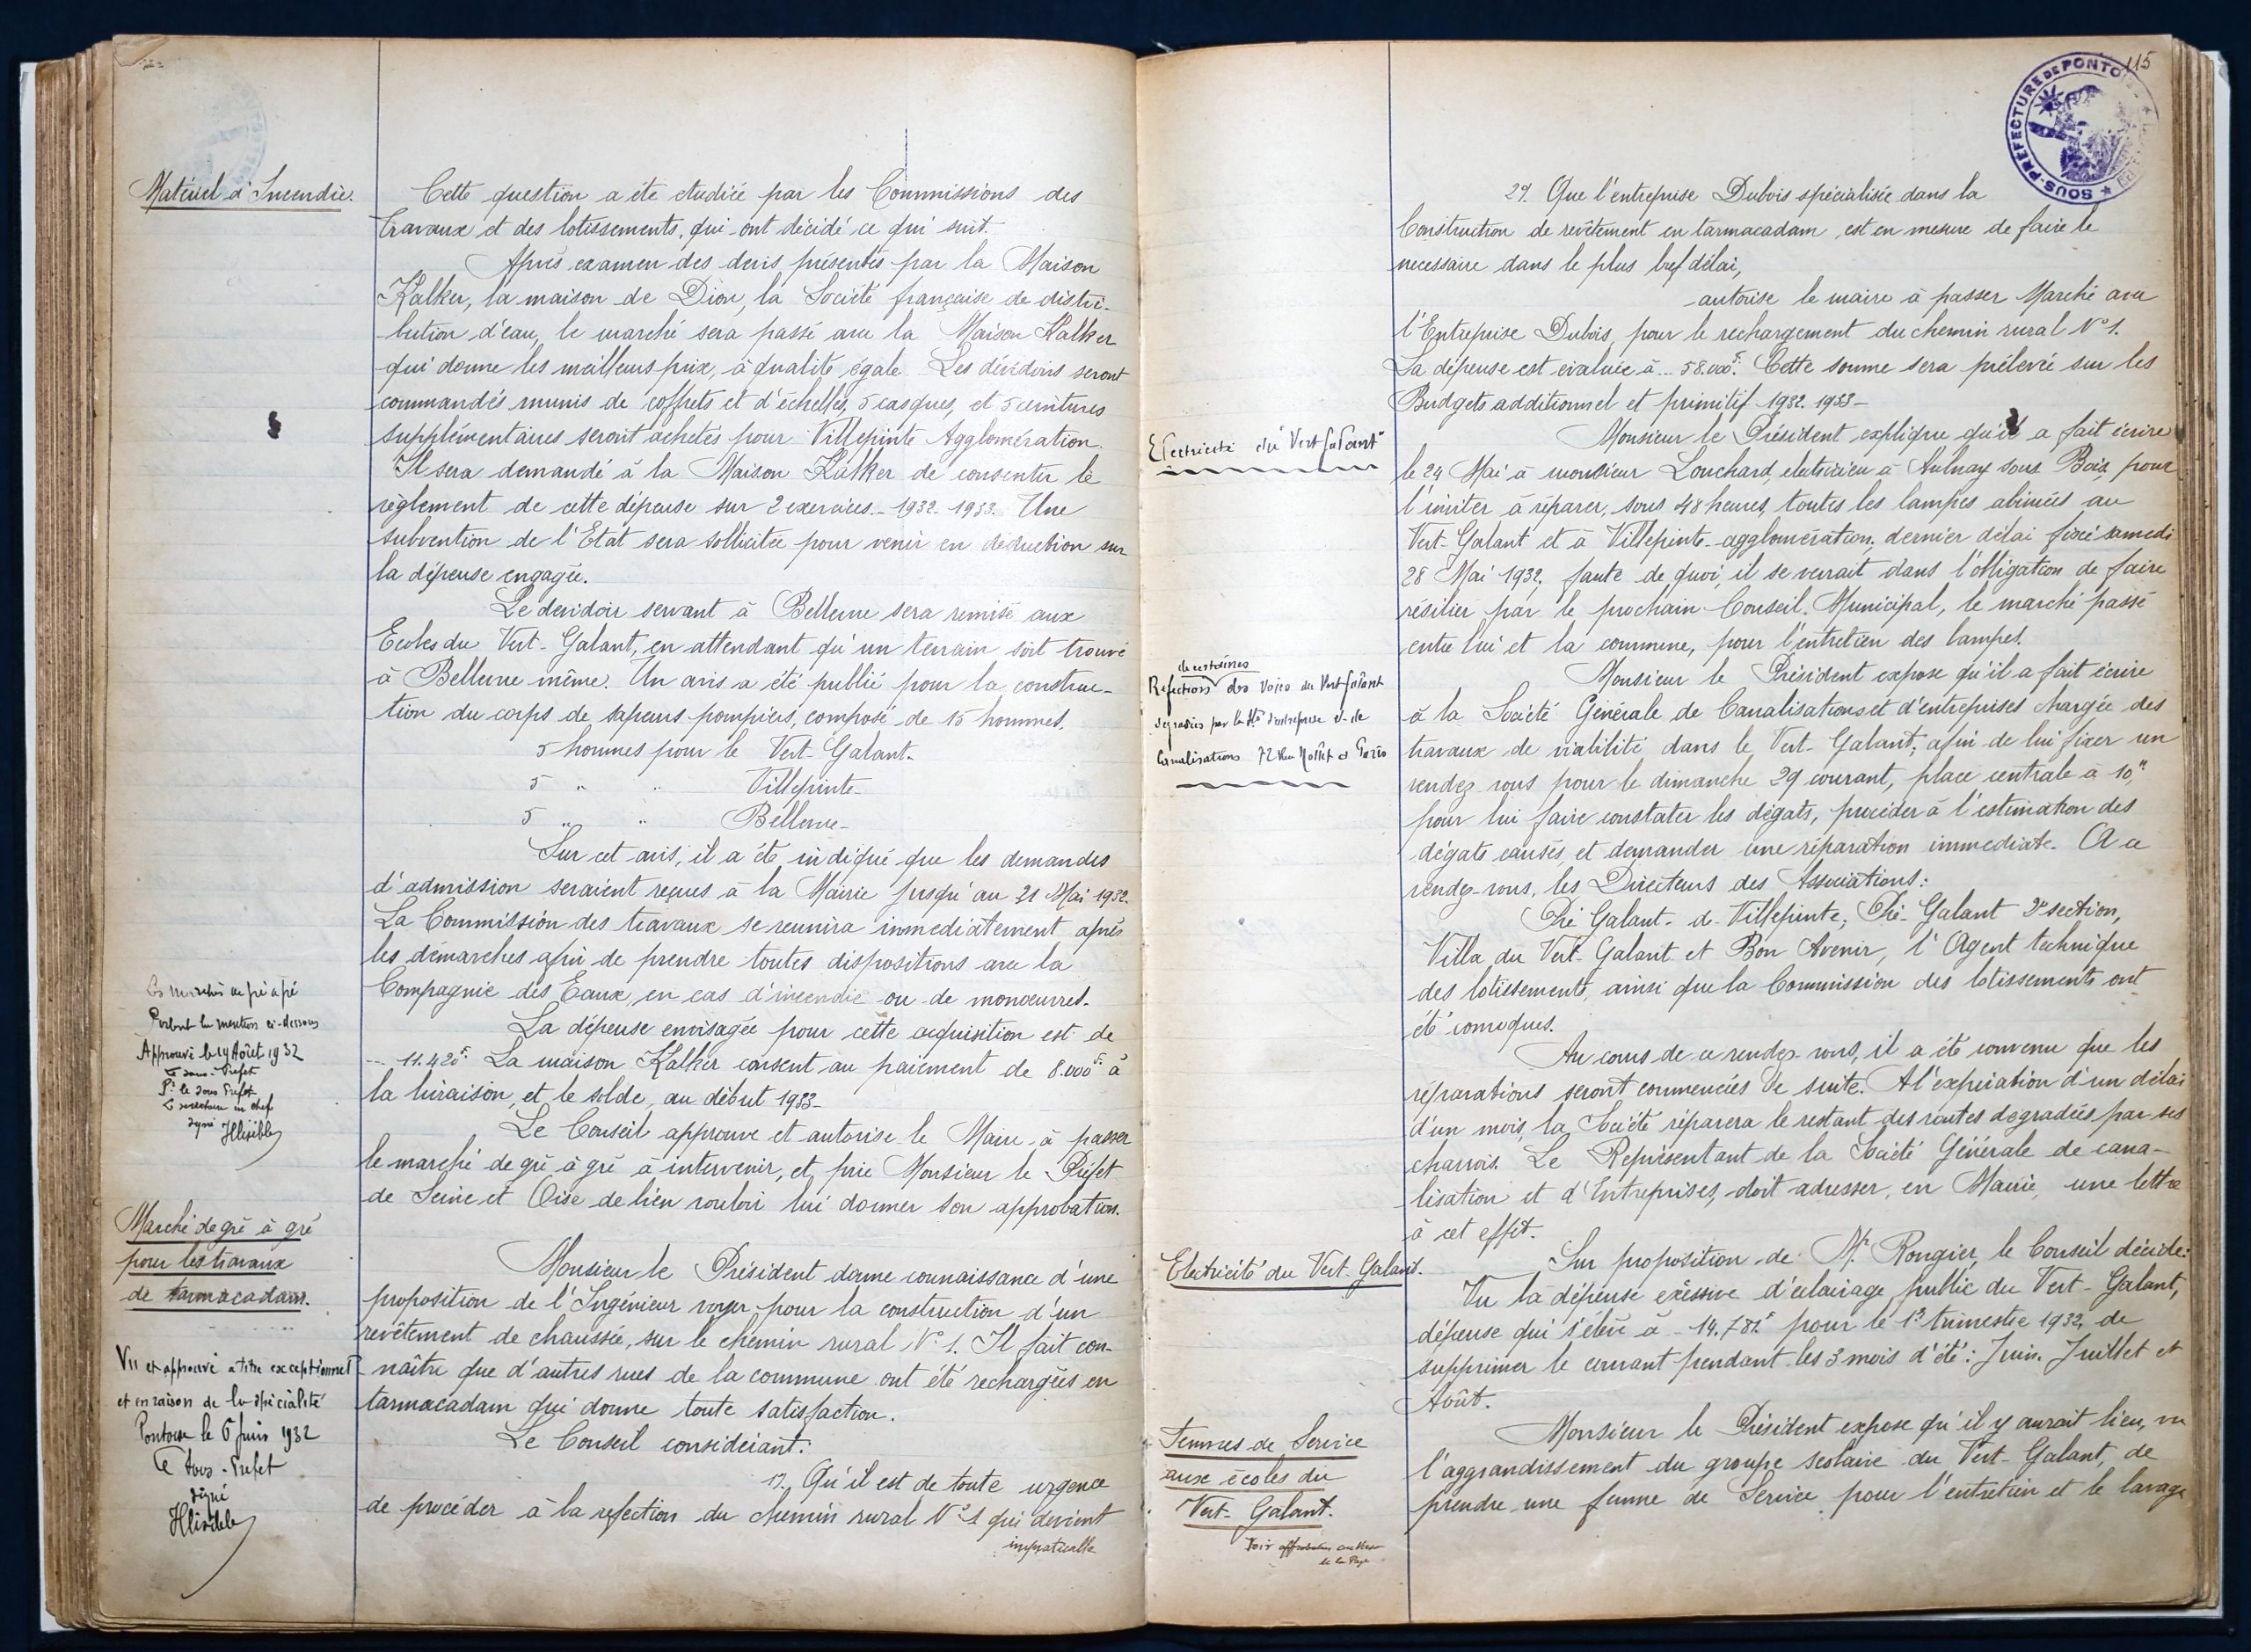 Matériel d'Incendie.
Cette question a été étudiée par les Commissions des
travaux et des lotissements, qui ont décidé ce qui suit.
Après examen des devis présentés par la Maison
Kalker, la maison de Dion, la Société française de distri-
-bution d'eau, le marché sera passé avec la Maison Kalker
qui donne les meilleurs prix, à qualité égale. Les dévidoirs seront
commandés munis de coffrets et d'échelles, 5 casques, et 5 ceintures
supplémentaires seront achetés pour Villepinte Agglomération.
Il sera demandé à la Maison Kalker de consentir le
règlement de cette dépense sur 2 exercices - 1932-1933. Une
subvention de l'Etat sera sollicitée pour venir en déduction sur
la dépense engagée.
Le devidoir servant à Bellevue sera remisé aux
Ecoles du Vert-Galant, en attendant qu'un terrain soit trouvé
à Bellevue même. Un avis a été publié pour la construc-
tion du corps de sapeurs-pompiers, composé de 15 hommes.
5 hommes pour le Vert-Galant.
5 " " Villepinte-
5 " " Bellevue-
Sur cet avis, il a été indiqué que les demandes
d'admission seraient reçues à la Mairie jusqu'au 21 Mai 1932.
La Commission des travaux se reunira immediatement après
les démarches afin de prendre toutes dispositions avec la
Compagnie des Eaux, en cas d'incendie ou de manoeuvres.
La dépense envisagée pour cette acquisition est de
--- 11.420F. La maison Kalker consent au paiement de 8.000F. à
la livraison, et le solde, au début 1933-
Le Conseil approuve et autorise le Maire à passer
le marché de gré à gré à intervenir, et prie Monsieur le Préfet
de Seine et Oise de bien vouloir lui donner son approbation.
Les marchés de gré à gré
Portent la mention ci-dessous
Approuvé le 19 Août 1932
Le sous-Préfet
Pr le Sous Préfet
Le secrétaire en chef
signé Illisible
Marché de gré à gré
pour les travaux
de tarmacadam.
Monsieur le Président donne connaissance d'une
proposition de l'Ingénieur voyer pour la construction d'un
revêtement de chaussée, sur le chemin rural N° 1. Il fait con-
naître que d'autres rues de la commune ont été rechargées en
tarmacadam qui donne toute satisfaction.
Le Conseil considérant:
1°/. Qu'il est de toute urgence
de procéder à la refection du chemin rural N° 1 qui devient
impraticable
Vu et approuvé à titre exceptionnel
et en raison de la spécialité
Pontoise le 6 Juin 1932
Le Sous-Préfet
signé
Illisible
115
SOUS-PREFECTURE DE PONTO
2°/. Que l'entreprise Dubois spécialisée dans la
Construction de revêtement en tarmacadam, est en mesure de faire le
necessaire dans le plus bref délai,
autorise le maire à passer Marché avec
l'Entreprise Dubois, pour le rechargement du chemin rural N° 1.
La dépense est évaluée à -- 58.000F. Cette somme sera prélevée sur les
Budgets additionnel et primitif 1932-1933-
Electricité du Vert Galant
Monsieur le Président explique qu'il a fait écrire
le 24 Mai à monsieur Louchard, électricien à Aulnay sous Bois, pour
l'inviter à réparer, sous 48 heures, toutes les lampes abimées au
Vert-Galant et à Villepinte-agglomération, dernier délai fixé samedi
28 Mai 1932, faute de quoi, il se verrait dans l'obligation de faire
résilier par le prochain Conseil Municipal, le marché passé
entre lui et la commune, pour l'entretien des lampes.
de certaines
Réfections des Voies du Vert galant
dégradées par la Sté d'entreprise et de
Canalisations
Monsieur le Président expose qu'il a fait écrire
à la Société Générale de Canalisations et d'entreprises chargée des
travaux de viabilité dans le Vert-Galant, afin de lui fixer un
rendez-vous pour le dimanche 29 courant, place centrale à 10h
pour lui faire constater les dégats, procéder à l'estimation des
dégats causés, et demander une réparation immediate. A ce
rendez-vous, les Directeurs des Associations:
Galant-de-Villepinte, Galant 2e section,
Villa du Vert-Galant et Bon Avenir, l'Agent technique
des lotissements, ainsi que la Commission des lotissements ont
été convoqués.
Au cours de ce rendez-vous, il a été convenu que les
réparations seront commencées de suite. A l'expiration d'un délai
d'un mois, la Société réparera le restant des routes dégradées par ses
charrois. Le Représentant de la Société Générale de cana-
lisation et d'Entreprises, doit adresser, en Mairie, une lettre
à cet effet.
Electricité du Vert-Galant.
Sur proposition de Mr. Rongier, le Conseil décide:
Vu la dépense exessive d'éclairage public du Vert-Galant,
dépense qui s'élève à -- 14.781F pour le 1er trimestre 1932, de
supprimer le courant pendant les 3 mois d'été: Juin. Juillet et
Août.
Femmes de Service
aux écoles du
Vert-Galant.
Voir approbation au verso
de la Page
Monsieur le Président expose qu'il y aurait lieu, vu
l'aggrandissement du groupe scolaire du Vert-Galant, de
prendre une femme de Service pour l'entretien et le lavage